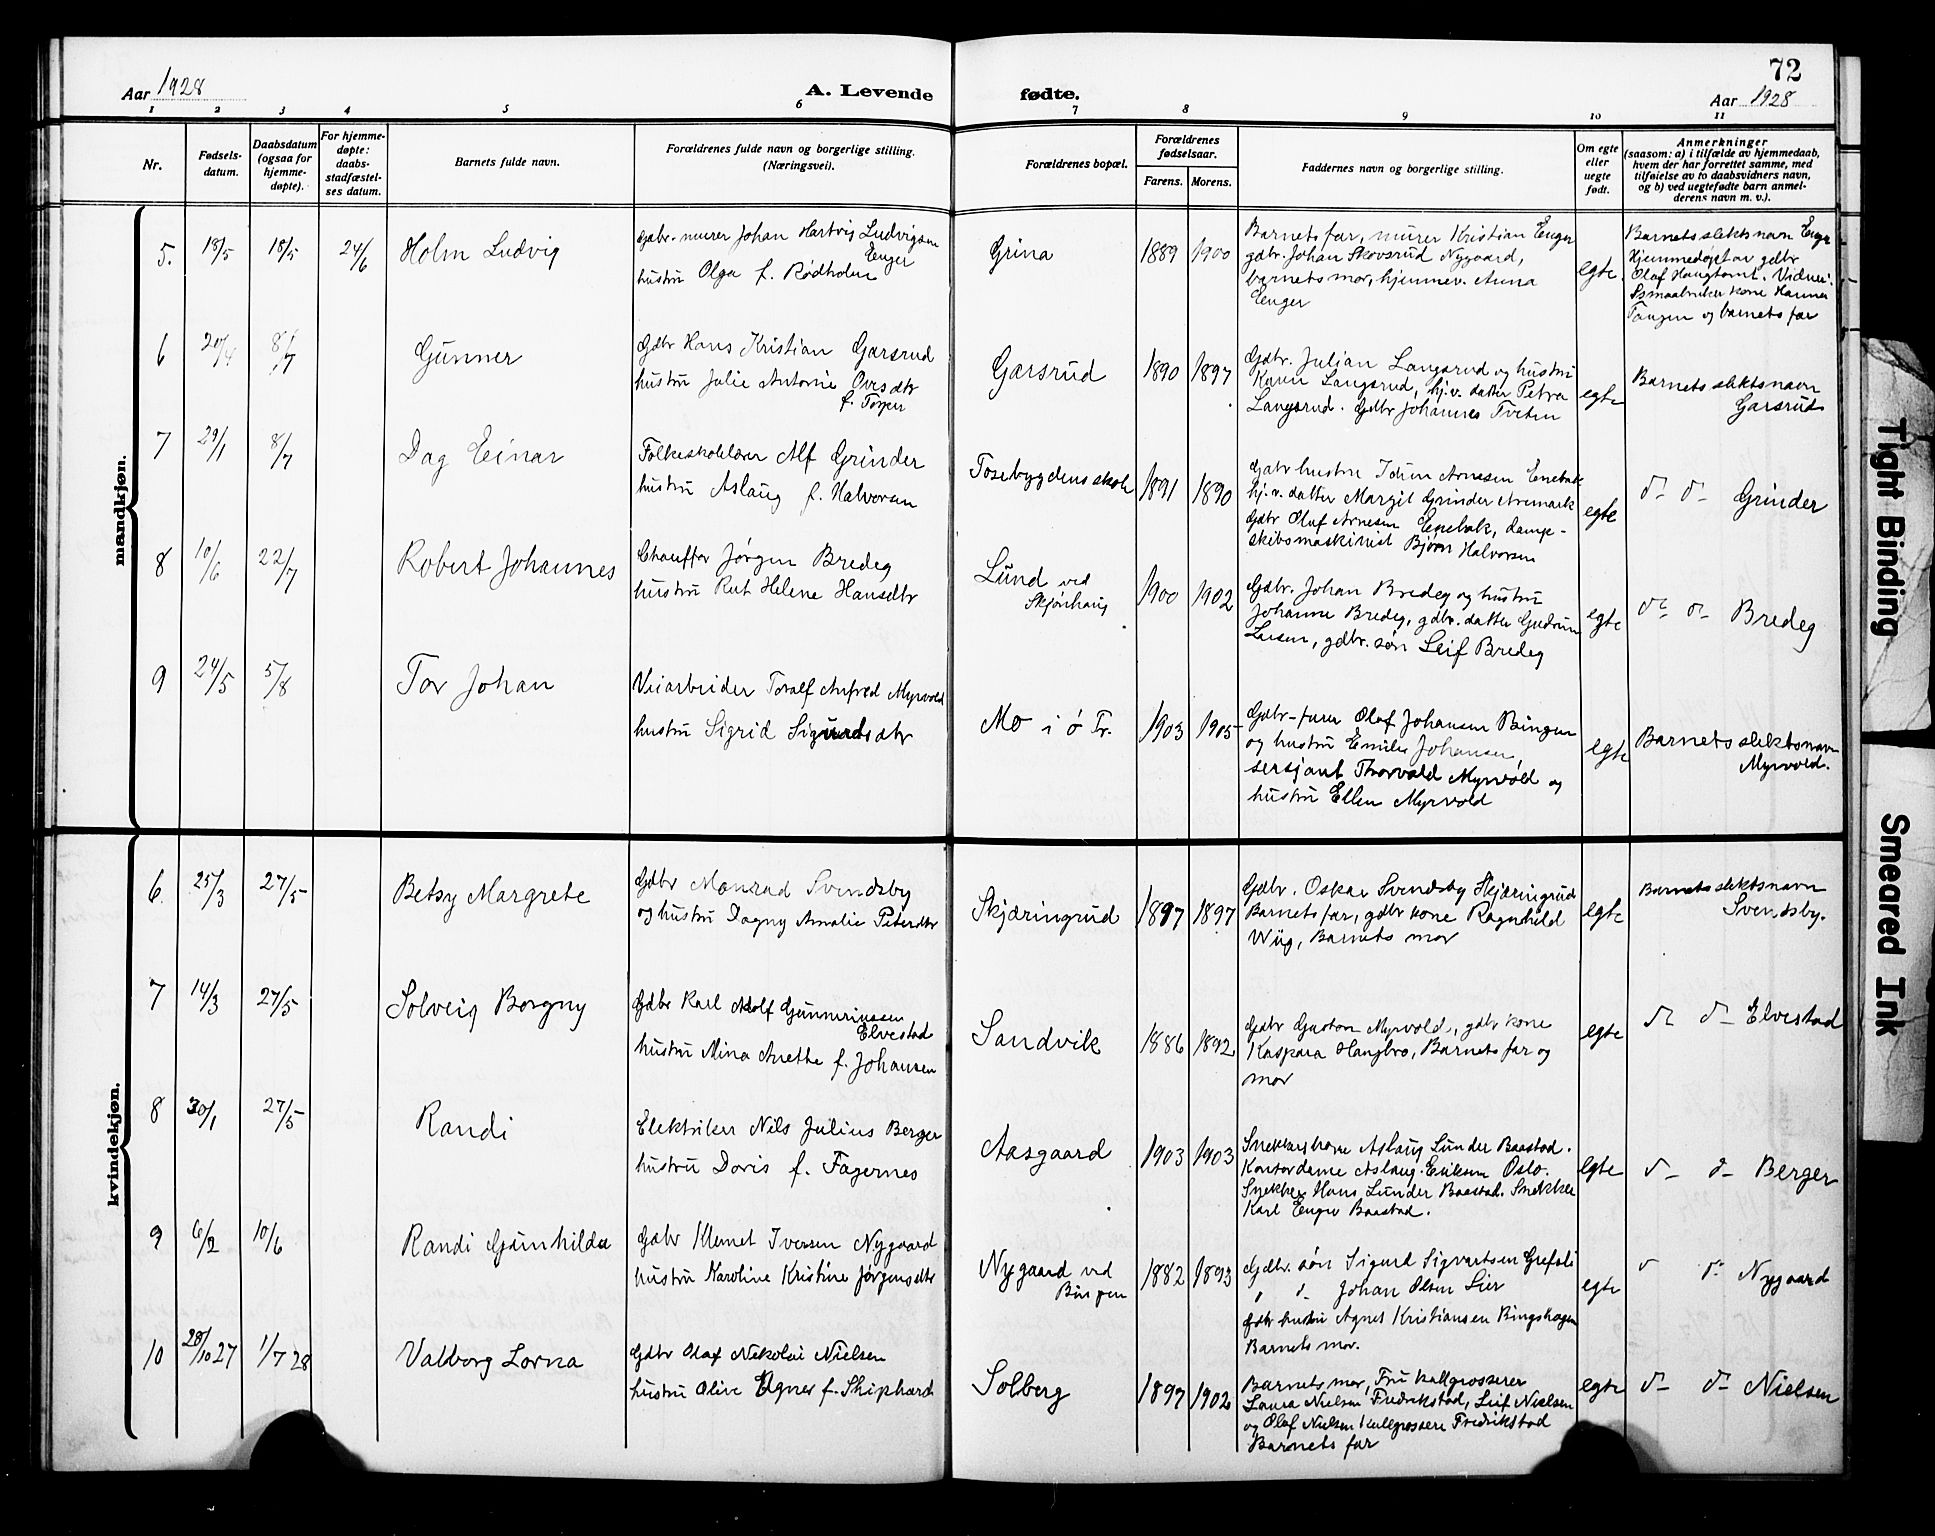 72
Aar 1928
A. Levende
fødte.
Aar 1928
1 2 3 4 5 6 7 8 9 10 11
Nr.
Fødsels-
datum.
Daabsdatum
(ogsaa for
hjemme-
døpte).
For hjemme-
døpte:
daabs-
stadfæstel-
ses datum.
Barnets fulde navn.
Forældrenes fulde navn og borgerlige stilling.
(Næringsvei).
Forældrenes bopæl.
Forældrenes
fødselsaar.
Farens. Morens.
Faddernes navn og borgerlige stilling.
Om egte
eller
uegte
født.
Anmerkninger
(saasom: a) i tilfælde av hjemmedaab,
hvem der har forrettet samme, med
tilføielse av to daabsvidners navn,
og b) ved uegtefødte barn anmel-
derens navn m. v.).
mandkjøn.
5. 18/5 18/5 24/6 Holm Ludvig
Gdbr. murer Johan Hartvig Ludvigsen
Enger
hustru Olga f. Rødholm
Grina 1889 1900
Barnets far, murer Kristian Enger
gdbr. Johan Skovsrud Nygaard,
barnets mor, hjemmev. Anna
Enger
egte
Barnets slektsnavn Enger
Hjemmedøpt av gdbr
Olaf Haugtomt. Vidner:
Smaabruker kone Hanna
Tangen og barnets far
6 20/4 8/7 Gunner
Gdbr Hans Kristian Garsrud
hustru Julie Antonie Ovesdtr
f. Torper
Garsrud 1890 1897
Gdbr. Julian Langsrud og hustru
Karen Langsrud, hj.v. datter Petra
Langsrud. Gdbr Johannes Tveten
egte
Barnets slektsnavn
Garsrud
7 29/1 8/7 Dag Einar
Folkeskolelærer Alf Grinder
hustru Aslaug f. Halvorsen
Tosebygdens skole 1891 1890
Gdbr hustru Idun Arnesen Enebak
hj.v. datter Margit Grinder Aremark
Gdbr Olaf Arnesen Enebak, damp-
skibsmaskinist Bjørn Halvorsen
egte
d- d- Grinder
8 10/6 22/7 Robert Johannes
Chauffør Jørgen Bredeg
hustru Rut Helene Hansdtr
Lund ved
Skjønhaug
1900 1902
Gdbr. Johan Bredeg og hustru
Johanne Bredeg, gdbr. datter Gudrun
Larsen, gdbr. søn Leif Bredeg
egte
d- d- Bredeg
9 24/5 5/8 Tor Johan
Veiarbeider Toralf Anfred Myrvold
hustru Sigrid Sigurdsdtr
Mo i ø Tr. 1903 1905
Gdbr-fører Olaf Johansen Bingen
og hustru Emilie Johansen,
sersjant Thorvald Myrvold og
hustru Ellen Myrvold
egte
Barnets slektsnavn
Myrvold.
kvindekjøn.
6. 25/3 27/5 Betsy Margrete
Gdbr Monrad Svendsby
og hustru Dagny Amalie Petersdtr
Skjæringrud 1897 1897
Gdbr. Oskar Svendsby Skjæringrud
Barnets far, gdbr kone Ragnhild
Wiig, Barnets mor
egte
Barnets slektsnavn
Svendsby.
7 14/3 27/5 Solveig Borgny
Gdbr Karl Adolf Gunneriussen
Elvestad
hustru Mina Anette f. Johansen
Sandvik 1886 1892
Gdbr Gustav Myrvold, gdbr kone
Kaspara Haugbro, Barnets far og
mor
egte
d- d- Elvestad
8 30/1 27/5 Randi
Elektriker Nils Julius Berger
hustru Doris f. Fagernes
Aasgaard 1903 1903
Snekkerkone Aslaug Lunder Baastad.
Kontordame Aslaug Eriksen Oslo.
Snekker Hans Lunder Baastad. Snekker
Karl Enger Baastad.
egte
d- d- Berger
9 6/2 10/6 Randi Gunhilda
Gdbr Klemet Iversen Nygaard
hustru Karoline Kristine Jørgensdtr
Nygaard ved
Bingen
1882 1893
Gdbr. søn Sigurd Sigvartsen Grefsli
" d- Johan Olsen Lier
gdbr hustru Agnes Kristiansen Bingshagen
Barnets mor.
egte
d- d- Nygaard
10 28/10 27 1/7 28 Valborg Lorna
Gdbr Olaf Nikolai Nielsen
hustru Olive Agnes f. Shiphard
Solberg 1897 1902
Barnets mor, Fru kullgrosserer
Laura Nielsen Fredrikstad, Leif Nielsen
og Olaf Nielsen Kullgrosserer Fredrikstad
Barnets far
egte
d- d- Nielsen
Tight Binding
Smeared Ink